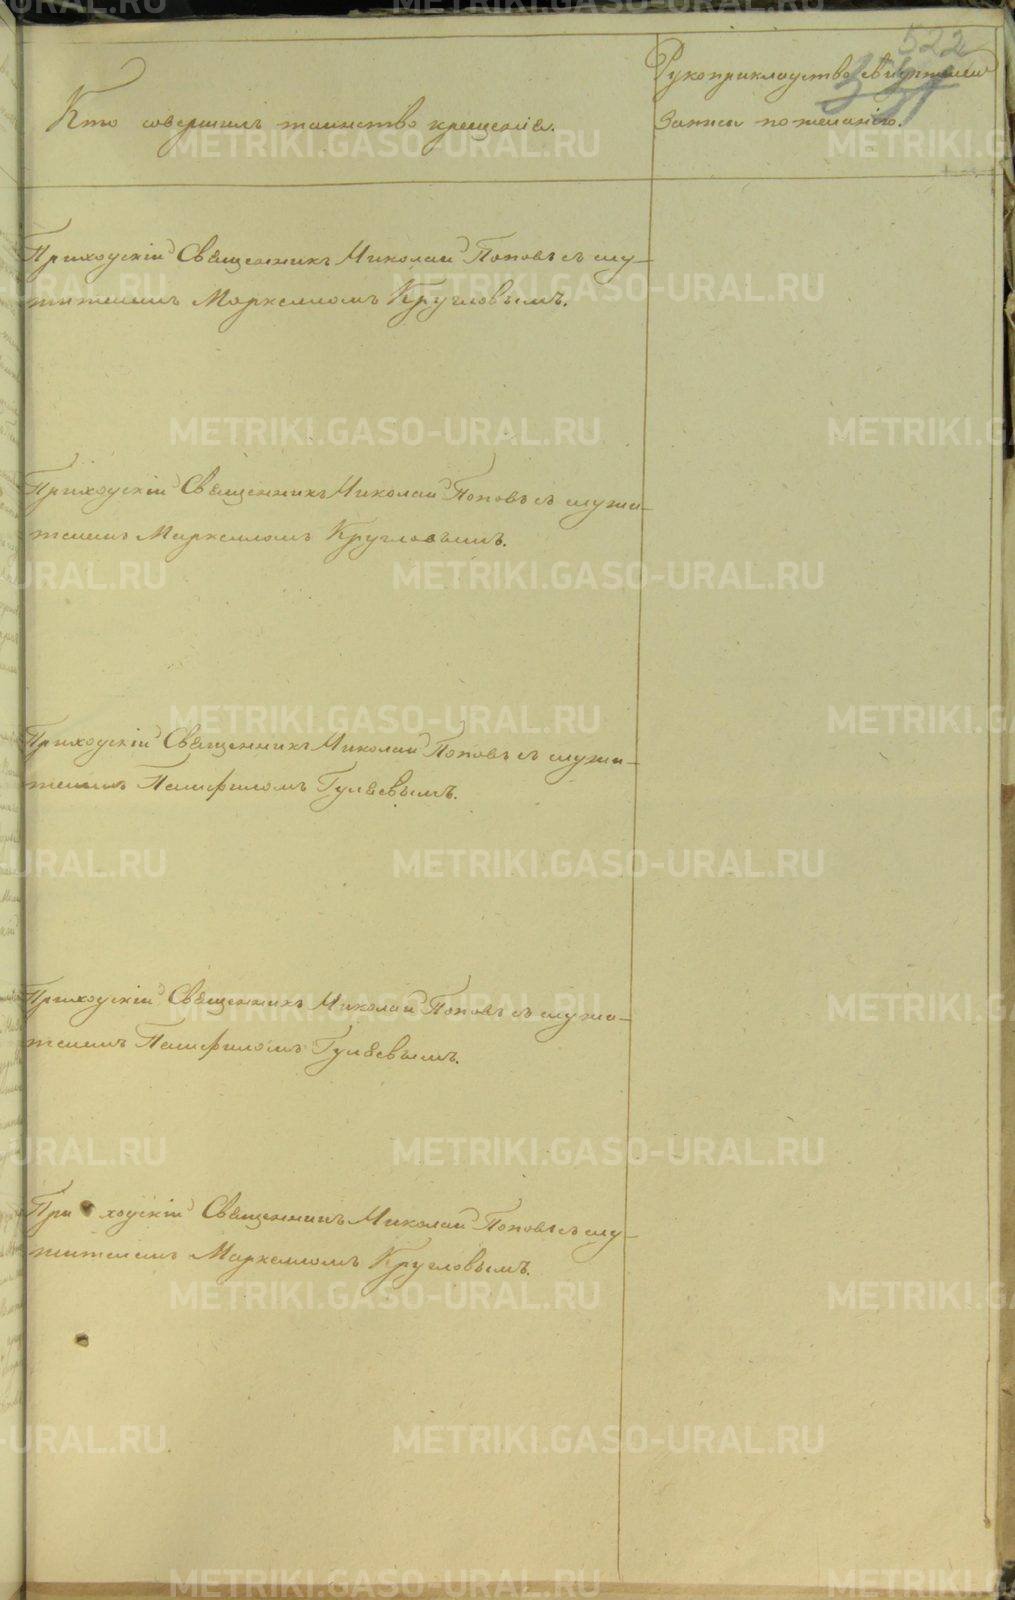 522
Кто совершилъ таинство крещенія.
Рукоприкладство свидѣтелей
записи по желанію.
Приходскій Священникъ Николай Поповъ съ слу-
жителемъ Маркелломъ Кругловымъ.
Приходскій Священникъ Николай Поповъ съ служи-
телемъ Маркелломъ Кругловымъ.
Приходскій Священникъ Николай Поповъ съ служи-
телемъ Памфиломъ Гуляевымъ.
Приходскій Священникъ Николай Поповъ съ служи-
телемъ Памфиломъ Гуляевымъ.
Приходскій Священникъ Николай Поповъ съ слу-
жителемъ Маркелломъ Кругловымъ.
METRIKI.GASO-URAL.RU